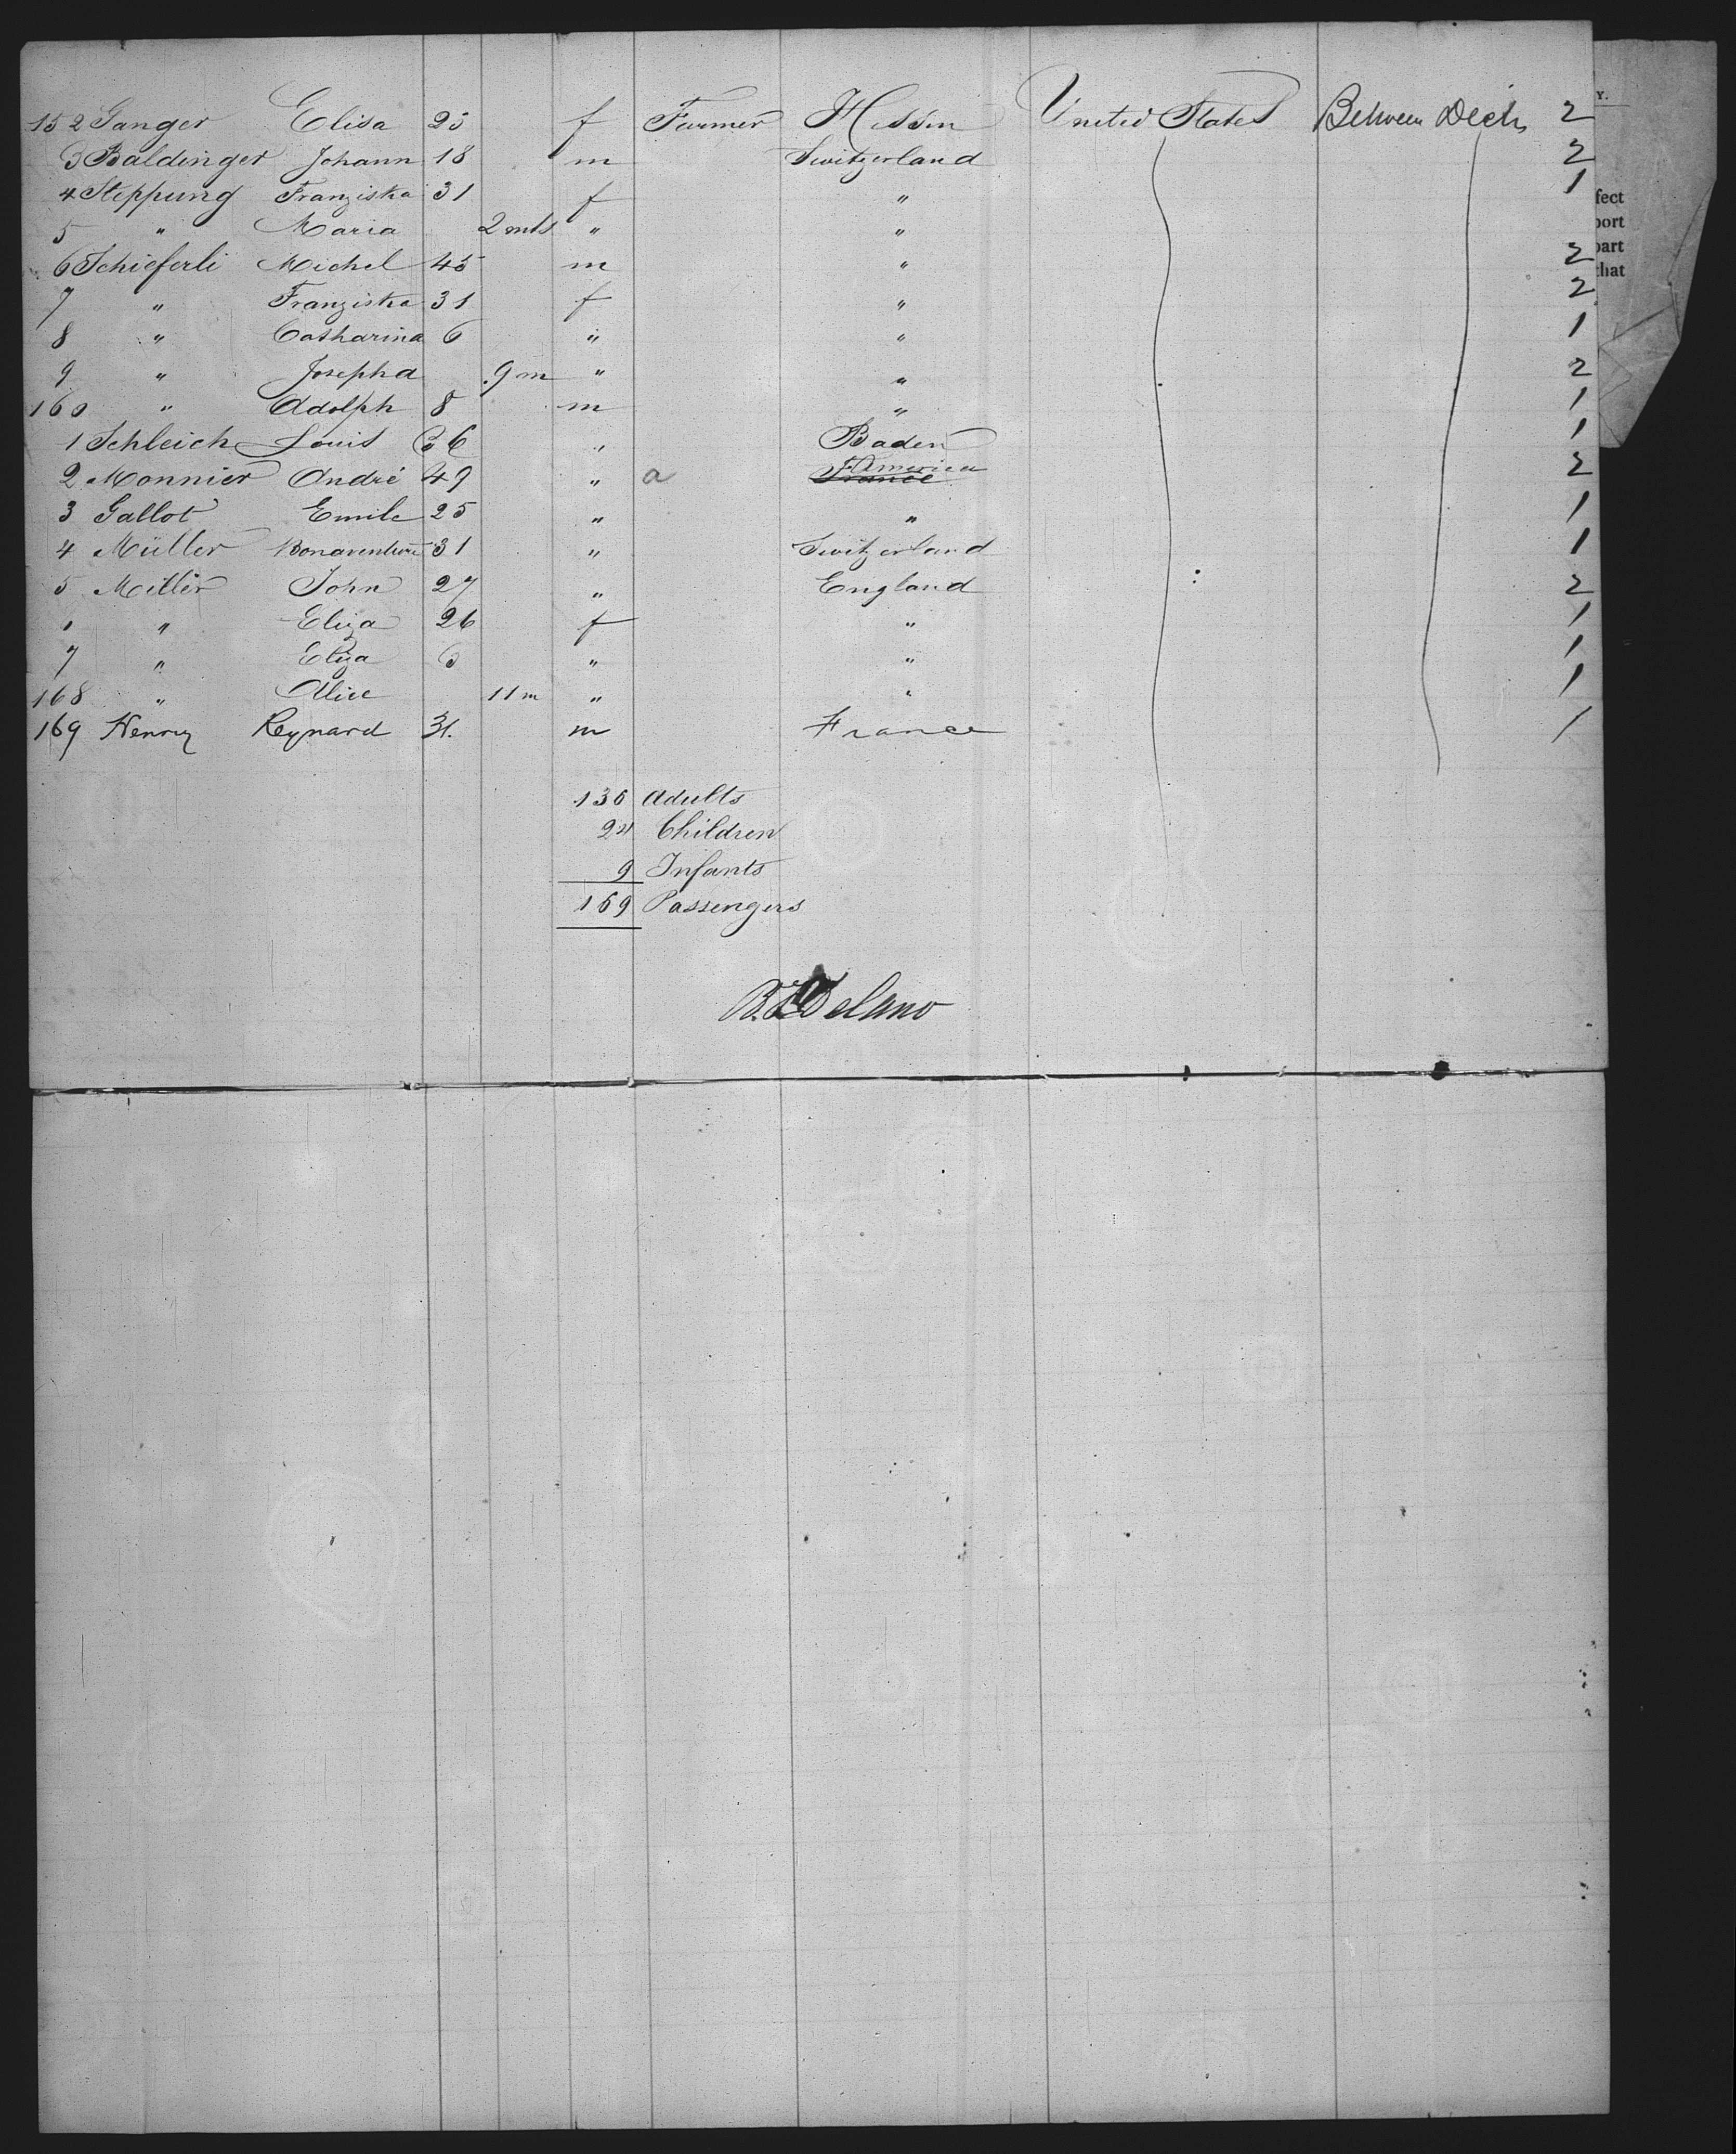 152 Sanger Elisa 25 f Farmer Hessen United States Between Decks 2
3 Baldinger Johann 18 m Switzerland 2
4 Steppung Franziska 31 f " 1
5 " Maria 2 mts " "
6 Schieferli Michel 45 m " 2
7 " Franziska 31 f " 2
8 " Catharina 6 " " 1
9 " Josepha 9 m " " 2
160 " Adolph 8 m " 1
1 Schleich Louis 36 " Baden 1
2 Monnier André 49 " a France America 2
3 Gallot Emile 25 " " 1
4 Müller Bonaventure 31 " Switzerland 1
5 Miller John 27 " England 2
" Eliza 26 f " 1
7 " Eliza " " 1
168 " Alice 11 m " " 1
169 Henry Reynard 31. m France 1
136 Adults
24 Children
9 Infants
169 Passengers
Delano
Y.
fect
port
part
that